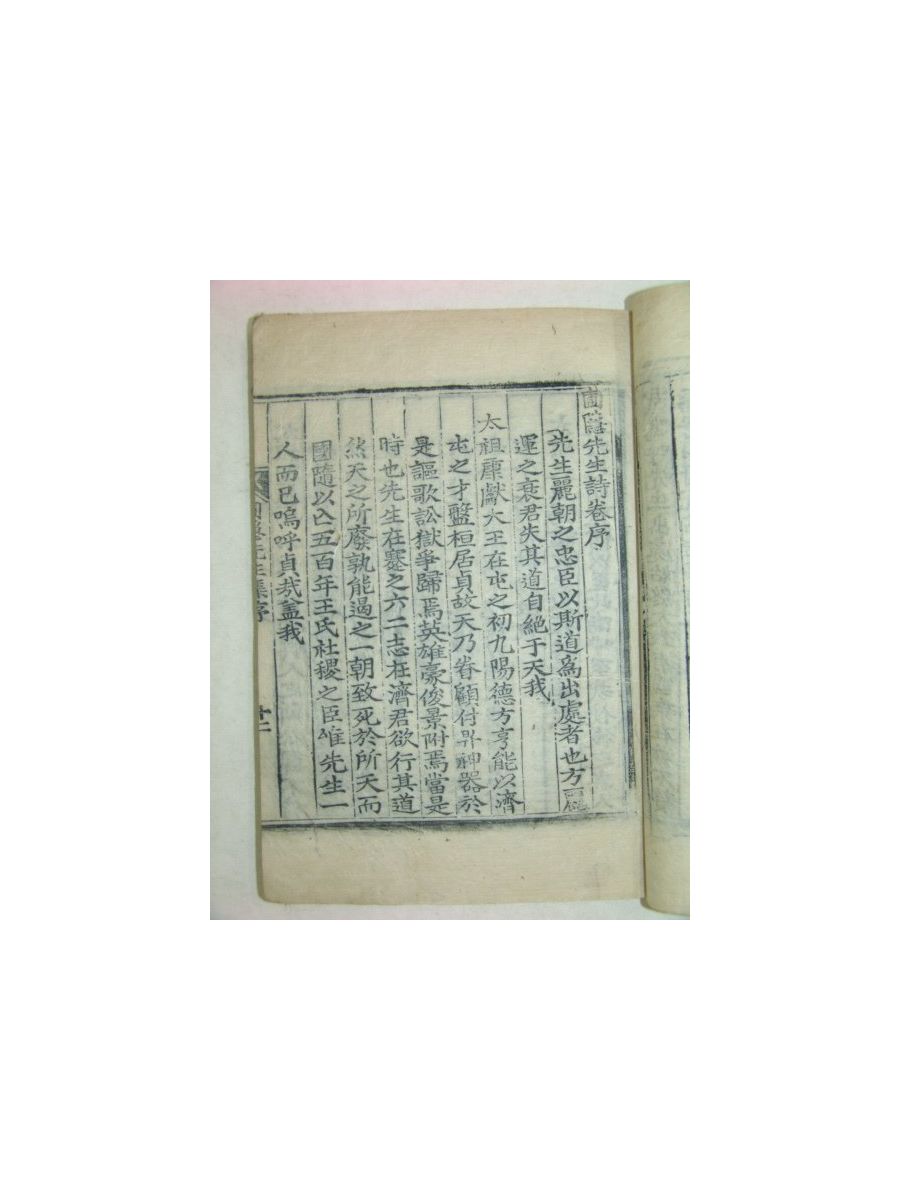 圃隱先生詩卷序
先生麗朝之忠臣以斯道為出處者也方麗
運之衰君失其道自絕于天我
太祖康獻大王在屯之初九陽德方亨能以濟
屯之才盤桓居貞故天乃眷顧付畀神器於
是謳歌訟獄爭歸焉英雄豪俊景附焉當是
時也先生在蹇之六二志在濟君欲行其道
然天之所廢孰能遏之一朝致死於所天而
國隨以亡五百年王氏社稷之臣唯先生一
人而已嗚呼貞哉盖我
先生集序